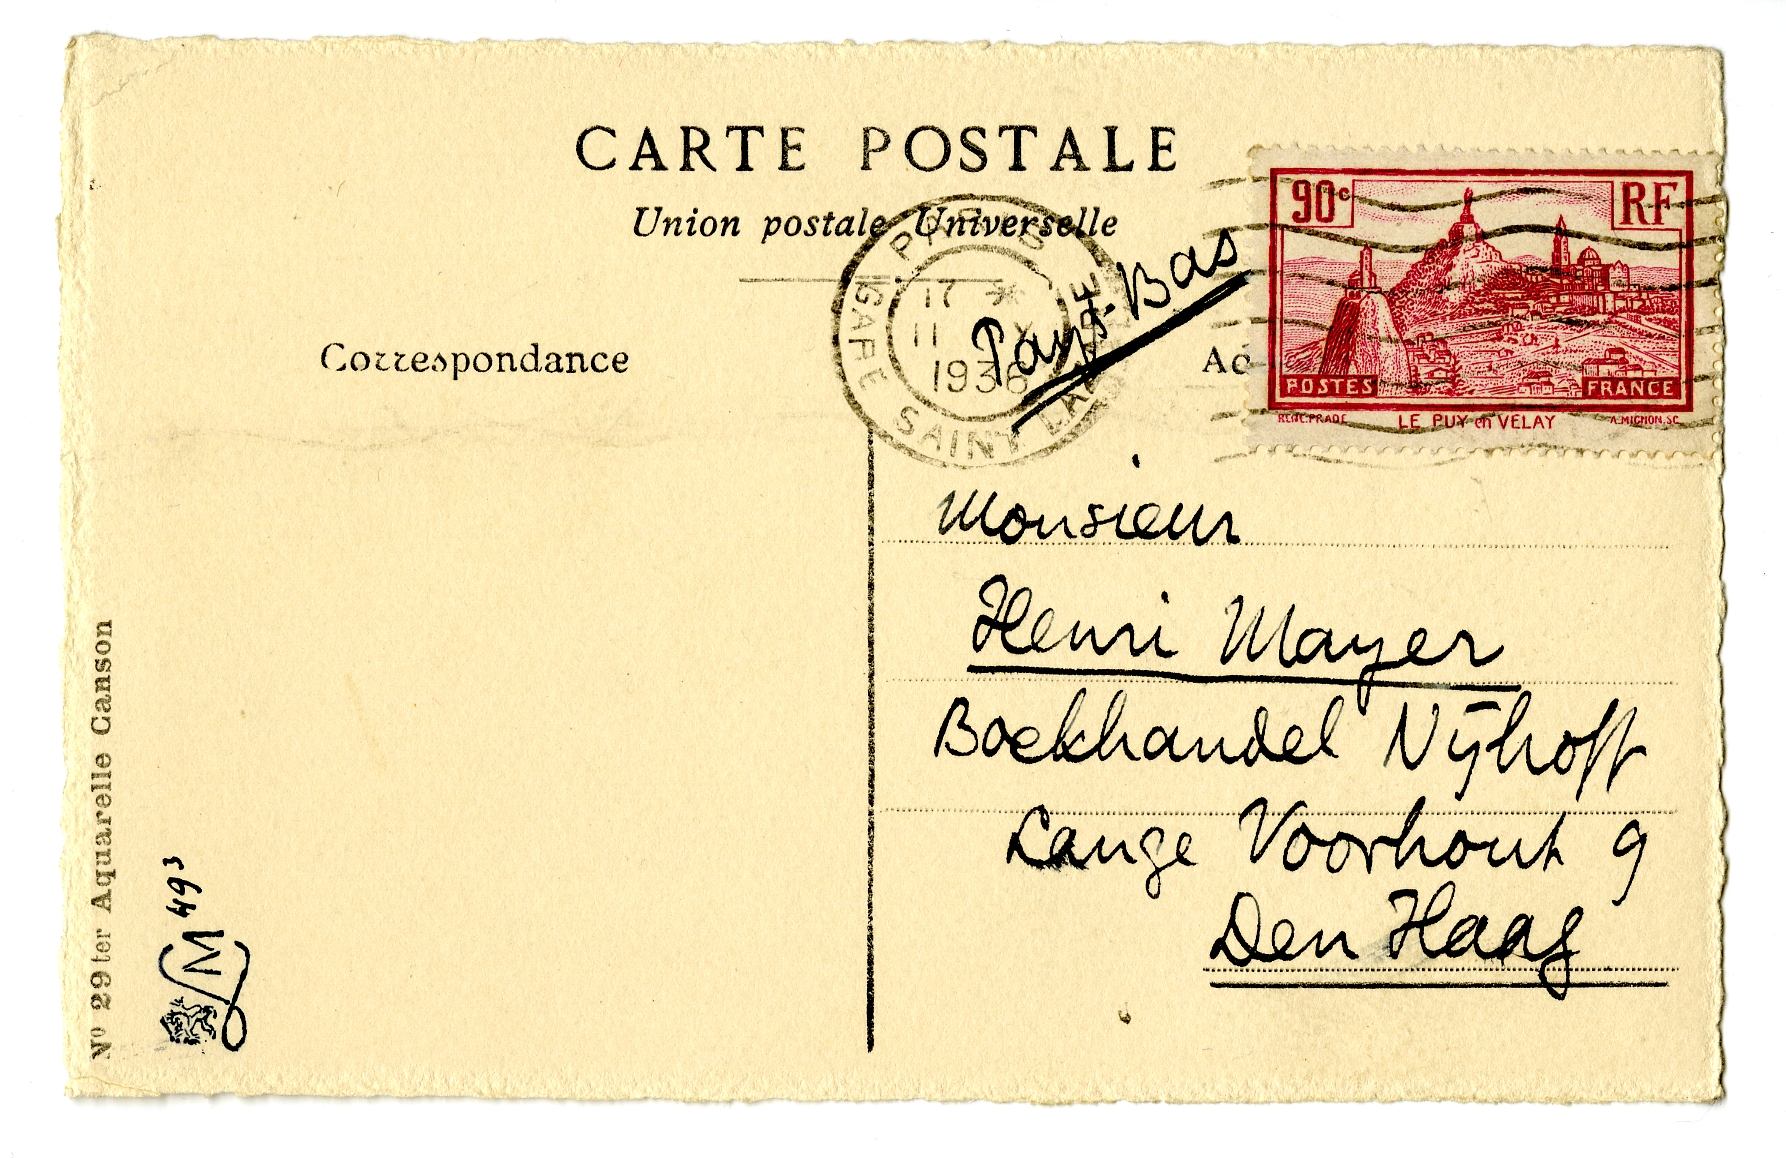 CARTE POSTALE
Union postale Universelle
PARIS
GARE SAINT LAZARE
17 *
11 X
1936
Pays-Bas
90c
RF
POSTES
FRANCE
LE PUY en VELAY
A.MIGNON.SC
Correspondance
Ad
Monsieur
Henri Mayer
Boekhandel Nijhoff
Lange Voorhout 9
Den Haag
No 29 ter Aquarelle Canson
LM 493